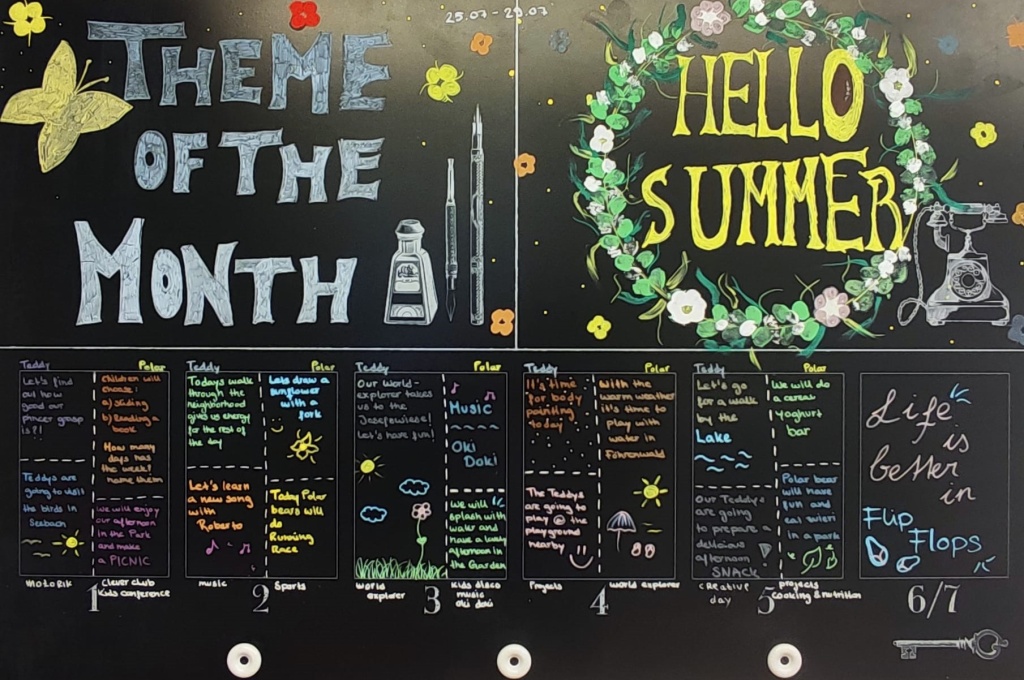 25.07 - 29.07
THEME
OF THE
MONTH
HELLO
SUMMER
Teddy
Let's find
out how
good our
pincer grasp
is?!
Teddys are
going to visit
the birds in
Seebach
Polar
Children will
choose:
a) Sliding
b) Reading a
book
How many
days has
the week?
name them
We will enjoy
our afternoon
in the Park
and make
a PICNIC
Motorik
Clever club
Kids conference
1
Teddy
Todays walk
through the
neighborhood
gives us energy
for the rest of
the day
Let's learn
a new song
with
Roberto
Polar
Lets draw a
sunflower
with a
fork
Today Polar
bears will
do
Running
Race
music
Sports
2
Teddy
Our World-
explorer takes
us to the
Josefwiese!
Let's have fun!
Polar
Music
Oki
Doki
We will
splash with
water and
have a lovely
afternoon in
the Garden
World
explorer
Kids disco
music
oki doki
3
Teddy
It's time
for body
painting
today
The Teddys
are going to
play @ the
playground
nearby
Polar
With the
warm weather
it's time to
play with
water in
Föhrenwald
Projects
world explorer
4
Teddy
Let's go
for a walk
by the
Lake
Our Teddys
are going
to prepare a
delicious
afternoon
SNACK
Polar
We will do
a cereal
Yoghurt
bar
Polar bears
will have
fun and
eat Zvieri
in a park
creative
day
projects
cooking & nutrition
5
Life
is
better
in
Flip
Flops
6/7